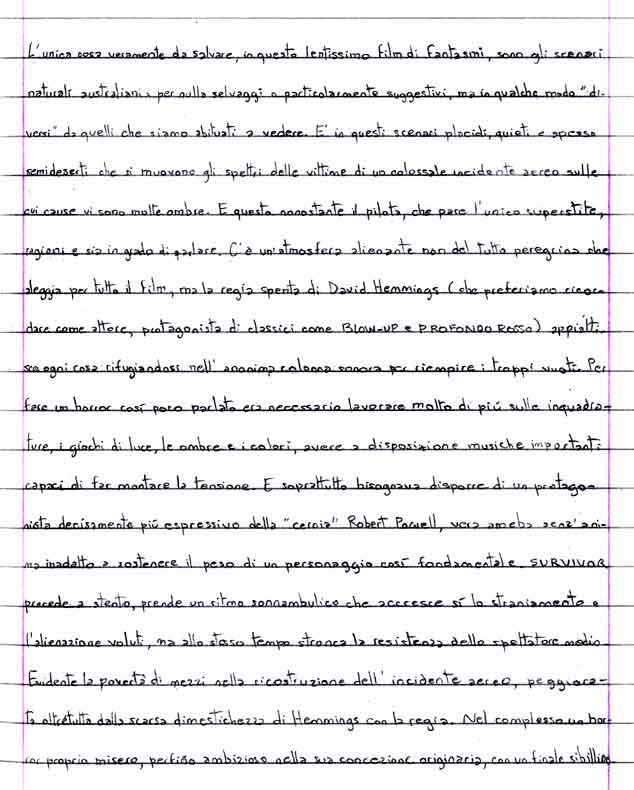 L'unica cosa veramente da salvare, in questo lentissimo film di fantasmi, sono gli scenari
naturali australiani: per nulla selvaggi o particolarmente suggestivi, ma in qualche modo "di-
versi" da quelli che siamo abituati a vedere. E' in questi scenari placidi, quieti e spesso
semideserti che si muovono gli spettri delle vittime di un colossale incidente aereo sulle
cui cause vi sono molte ombre. E questo nonostante il pilota, che pare l'unico superstite,
ragioni e sia in grado di parlare. C'è un'atmosfera alienante non del tutto peregrina che
aleggia per tutto il film, ma la regia spenta di David Hemmings (che preferiamo ricor-
dare come attore, protagonista di classici come BLOW-UP e PROFONDO ROSSO) appiatti-
sce ogni cosa rifugiandosi nell'anonima colonna sonora per riempire i troppi vuoti. Per
fare un horror così poco parlato era necessario lavorare molto di più sulle inquadra-
ture, i giochi di luce, le ombre e i colori, avere a disposizione musiche importanti
capaci di far montare la tensione. E soprattutto bisognava disporre di un protago-
nista decisamente più espressivo della "cernia" Robert Powell, vera ameba senz'ani-
ma inadatto a sostenere il peso di un personaggio così fondamentale. SURVIVOR
procede a stento, prende un ritmo sonnambulico che accresce sì lo straniamento e
l'alienazione voluti, ma allo stesso tempo stronca la resistenza dello spettatore medio.
Evidente la povertà di mezzi nella ricostruzione dell'incidente aereo, peggiora-
ta oltretutto dalla scarsa dimestichezza di Hemmings con la regia. Nel complesso un hor-
ror proprio misero, perfino ambizioso nella sua concezione originaria, con un finale sibillino